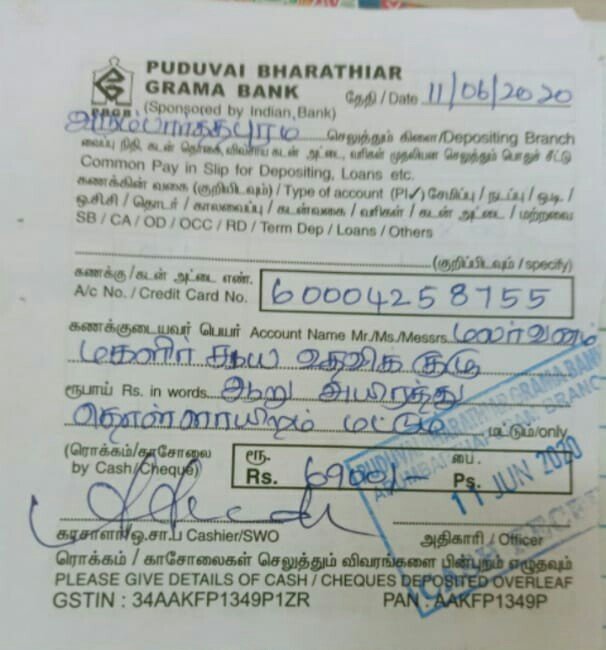 PUDUVAI BHARATHIAR
GRAMA BANK
PBGB (Sponsored by Indian Bank) தேதி / Date 11/06/2020
அரும்பார்த்தபுரம் செலுத்தும் கிளை/Depositing Branch
வைப்பு நிதி, கடன் தொகை, விவசாய கடன் அட்டை, வரிகள் முதலியன செலுத்தும் பொதுச் சீட்டு
Common Pay in Slip for Depositing, Loans etc.
கணக்கின் வகை (குறிப்பிடவும்) / Type of account (Pl✓) சேமிப்பு / நடப்பு / ஓ.டி /
ஓ.சி.சி / தொடர் / காலவைப்பு / கடன்வகை / வரிகள் / கடன் அட்டை / மற்றவை
SB / CA / OD / OCC / RD / Term Dep / Loans / Others
(குறிப்பிடவும் / specify)
கணக்கு/கடன் அட்டை எண்.
A/c No. / Credit Card No. 60004258755
கணக்குடையவர் பெயர் Account Name Mr./Ms./Messrs. மலர்வனம்
மகளிர் சுய உதவிக் குழு
ரூபாய் Rs. in words ஆறு ஆயிரத்து
தொள்ளாயிரம் மட்டும் மட்டும்/only
(ரொக்கம்/காசோலை ரூ. பை.
by Cash/Cheque) Rs. 6900/- Ps.
PUDUVAI BHARATHIAR GRAMA BANK
11 JUN 2020
காசாளர்/ஒ.சா.ப Cashier/SWO அதிகாரி / Officer
ரொக்கம் / காசோலைகள் செலுத்தும் விவரங்களை பின்புறம் எழுதவும்
PLEASE GIVE DETAILS OF CASH / CHEQUES DEPOSITED OVERLEAF
GSTIN : 34AAKFP1349P1ZR PAN : AAKFP1349P